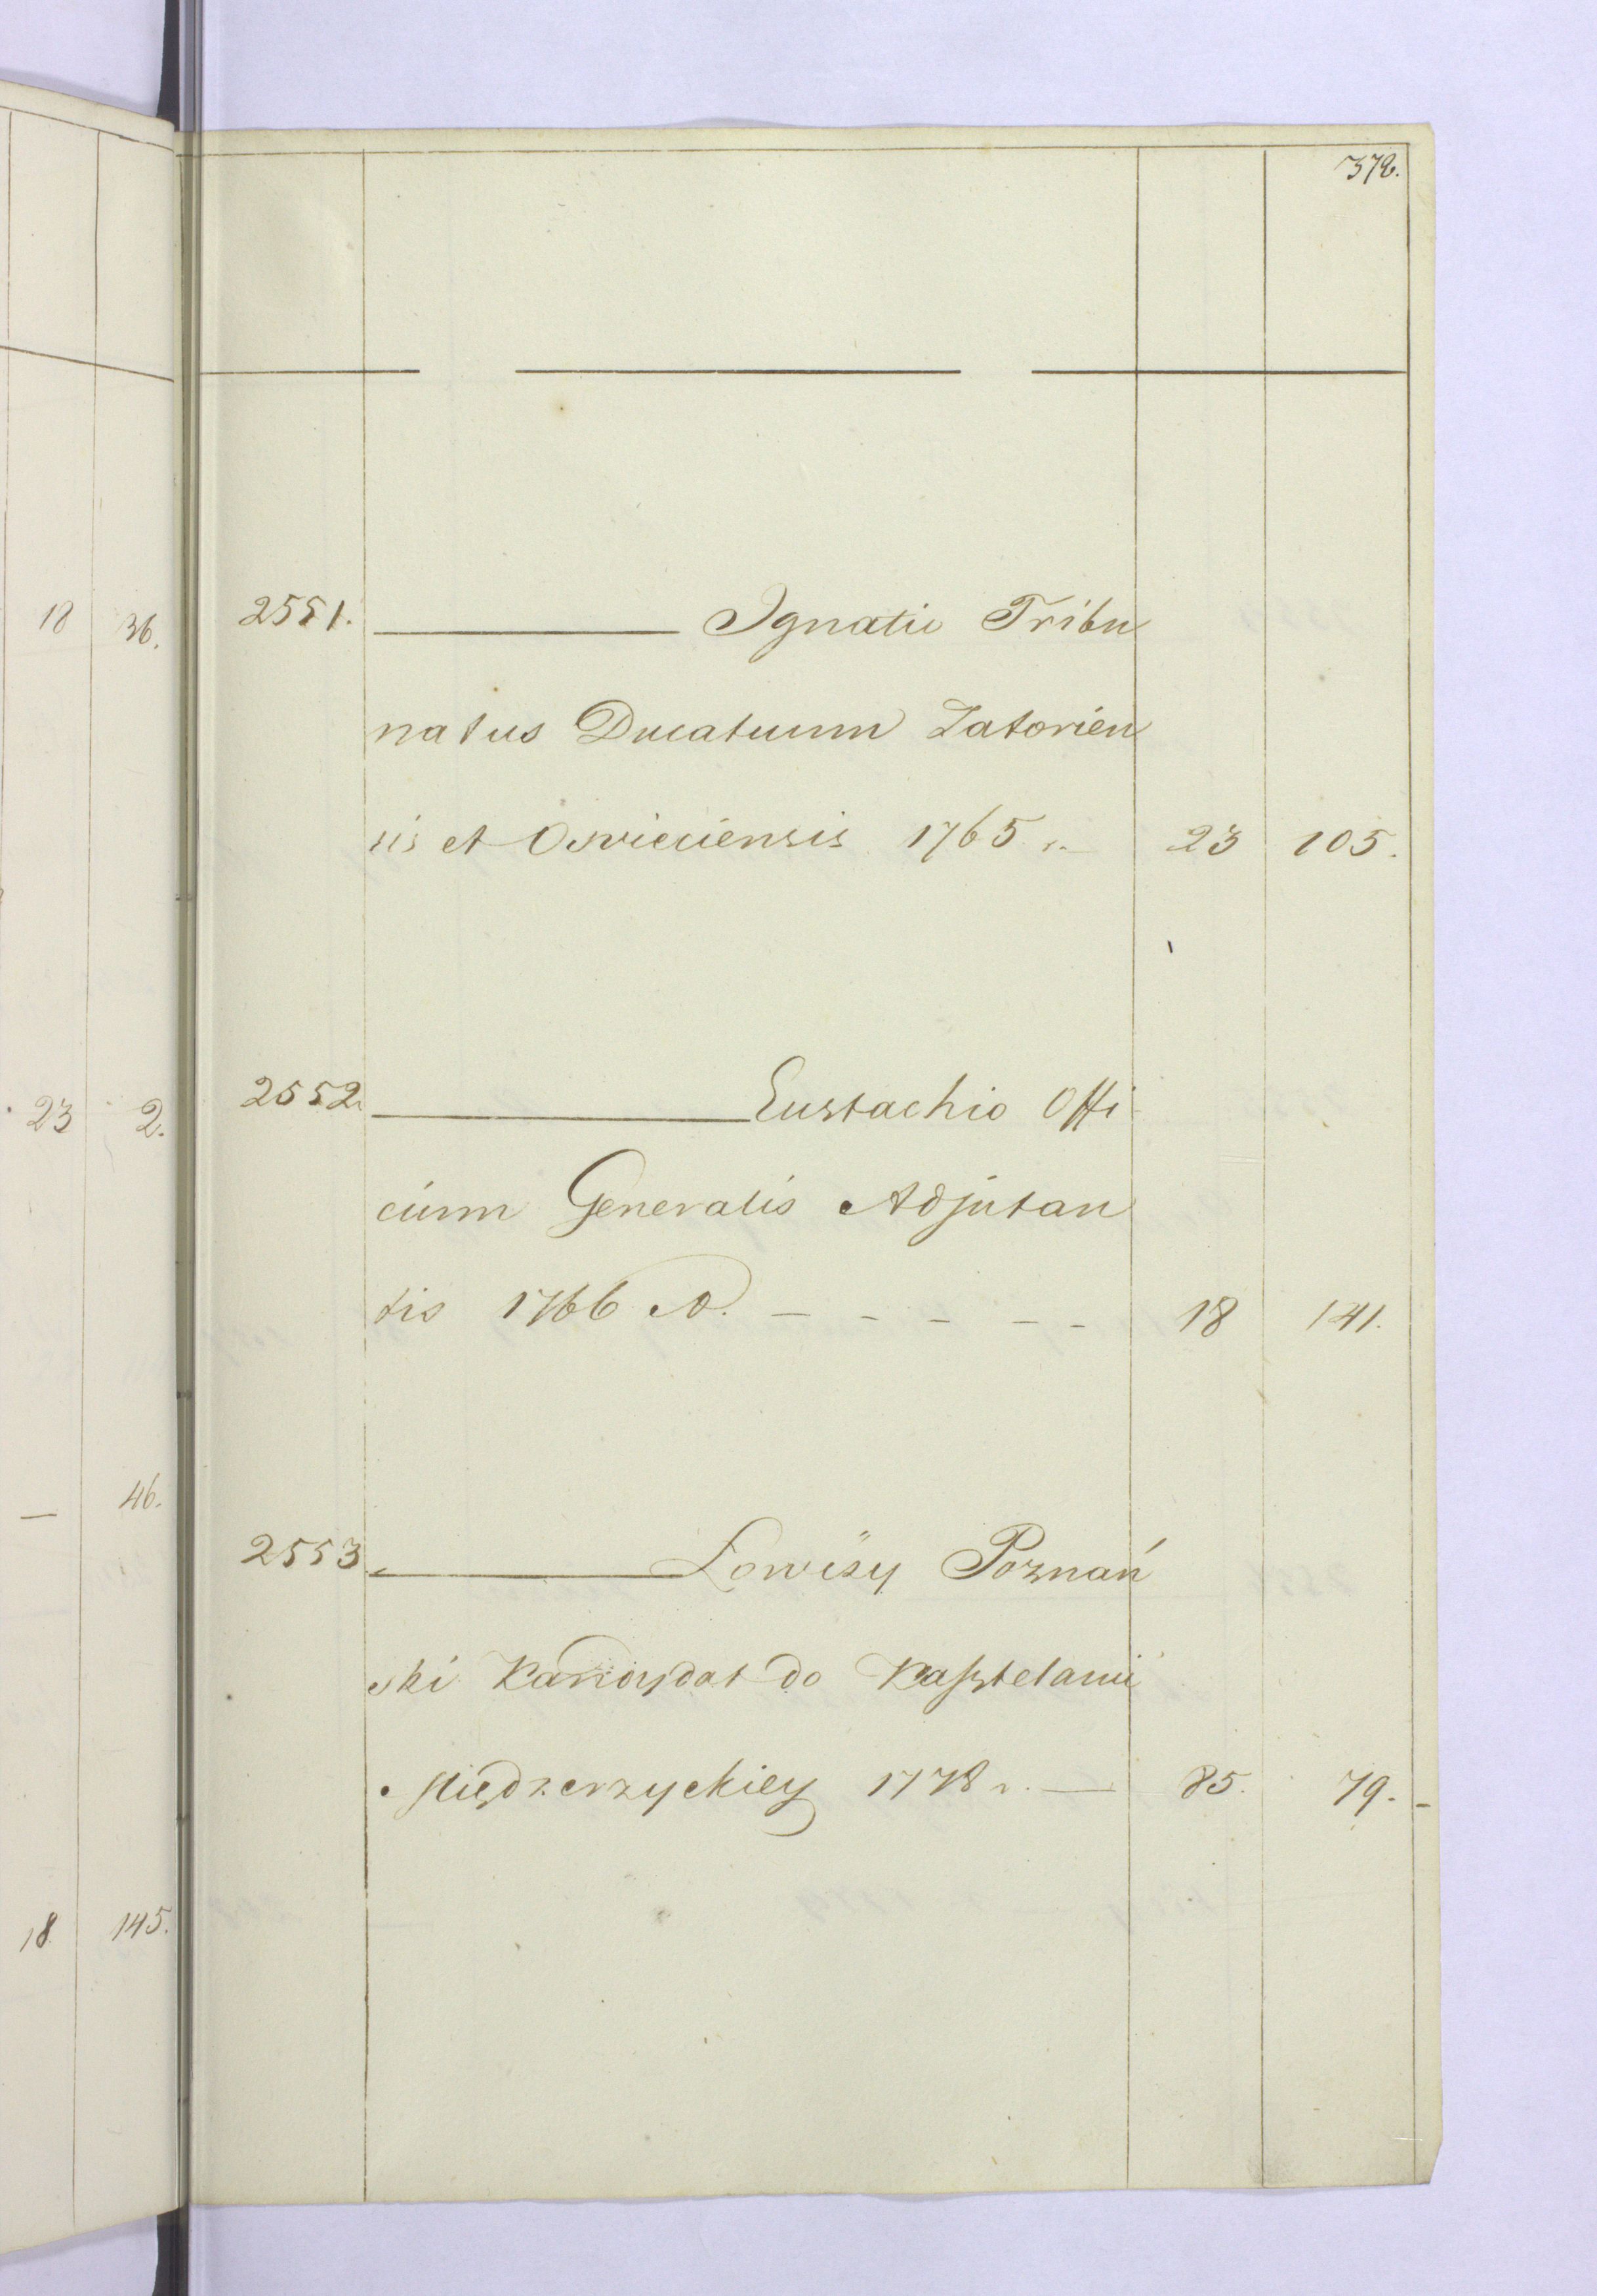 372.
18 36.
2551. Ignatio Tribu
natus Ducatuum Zatorien
sis et Osvieciensis 1765 r. 23 105.
23 2.
2552 Eustachio Offi
cium Generalis Adjutan
tis 1766 18 141.
— 46.
2553 Łowczy Poznań
ski Kandydat do Kasztelanii
Międzerzyckiey 1778 r. — 85. 79.
18 145.